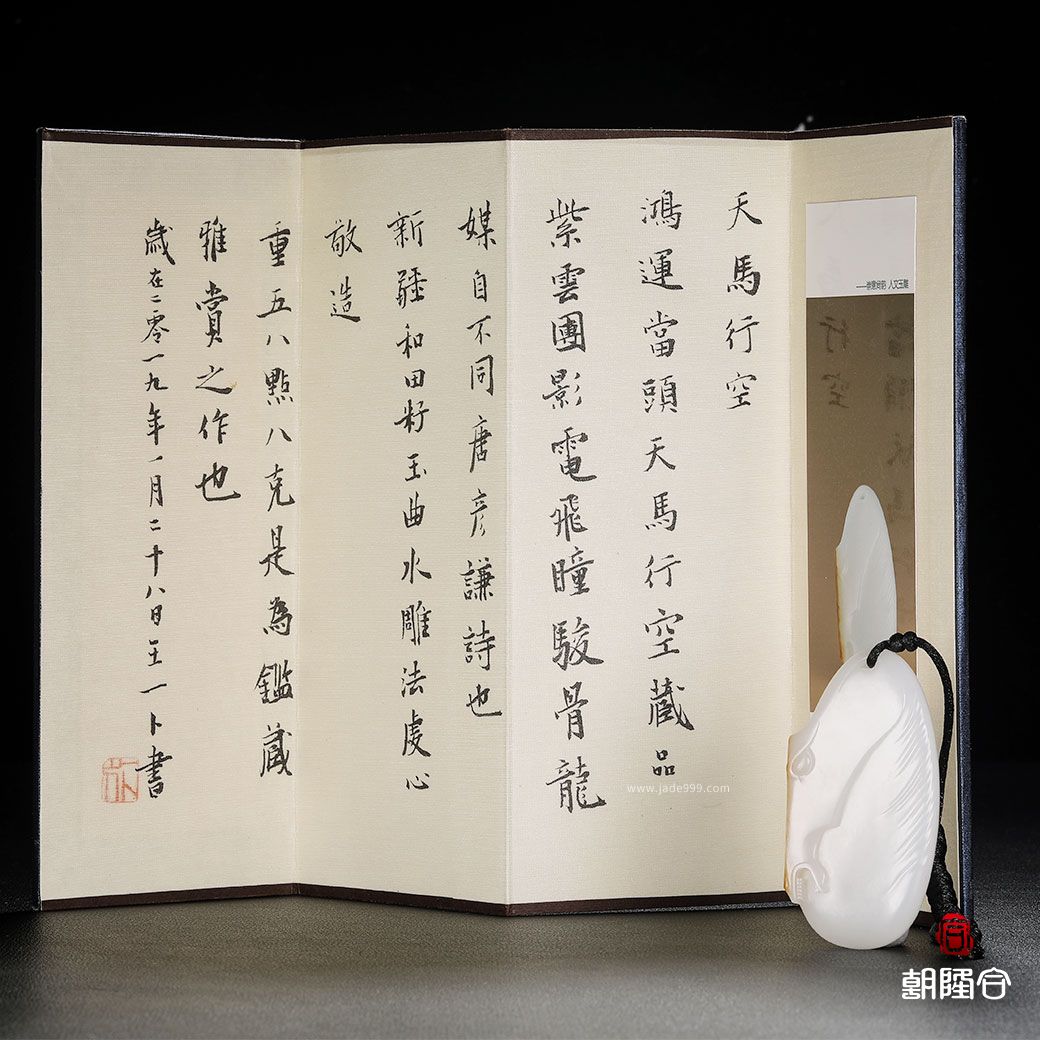 天馬行空
鴻運當頭天馬行空藏品
紫雲團影電飛瞳駿骨龍
媒自不同唐彦謙詩也
新疆和田籽玉曲水雕法虔心
敬造
重五八點八克是為鑑藏
雅賞之作也
歲在二零一九年一月二十八日王一卜書
人文玉雕
www.jade999.com
朝隆合